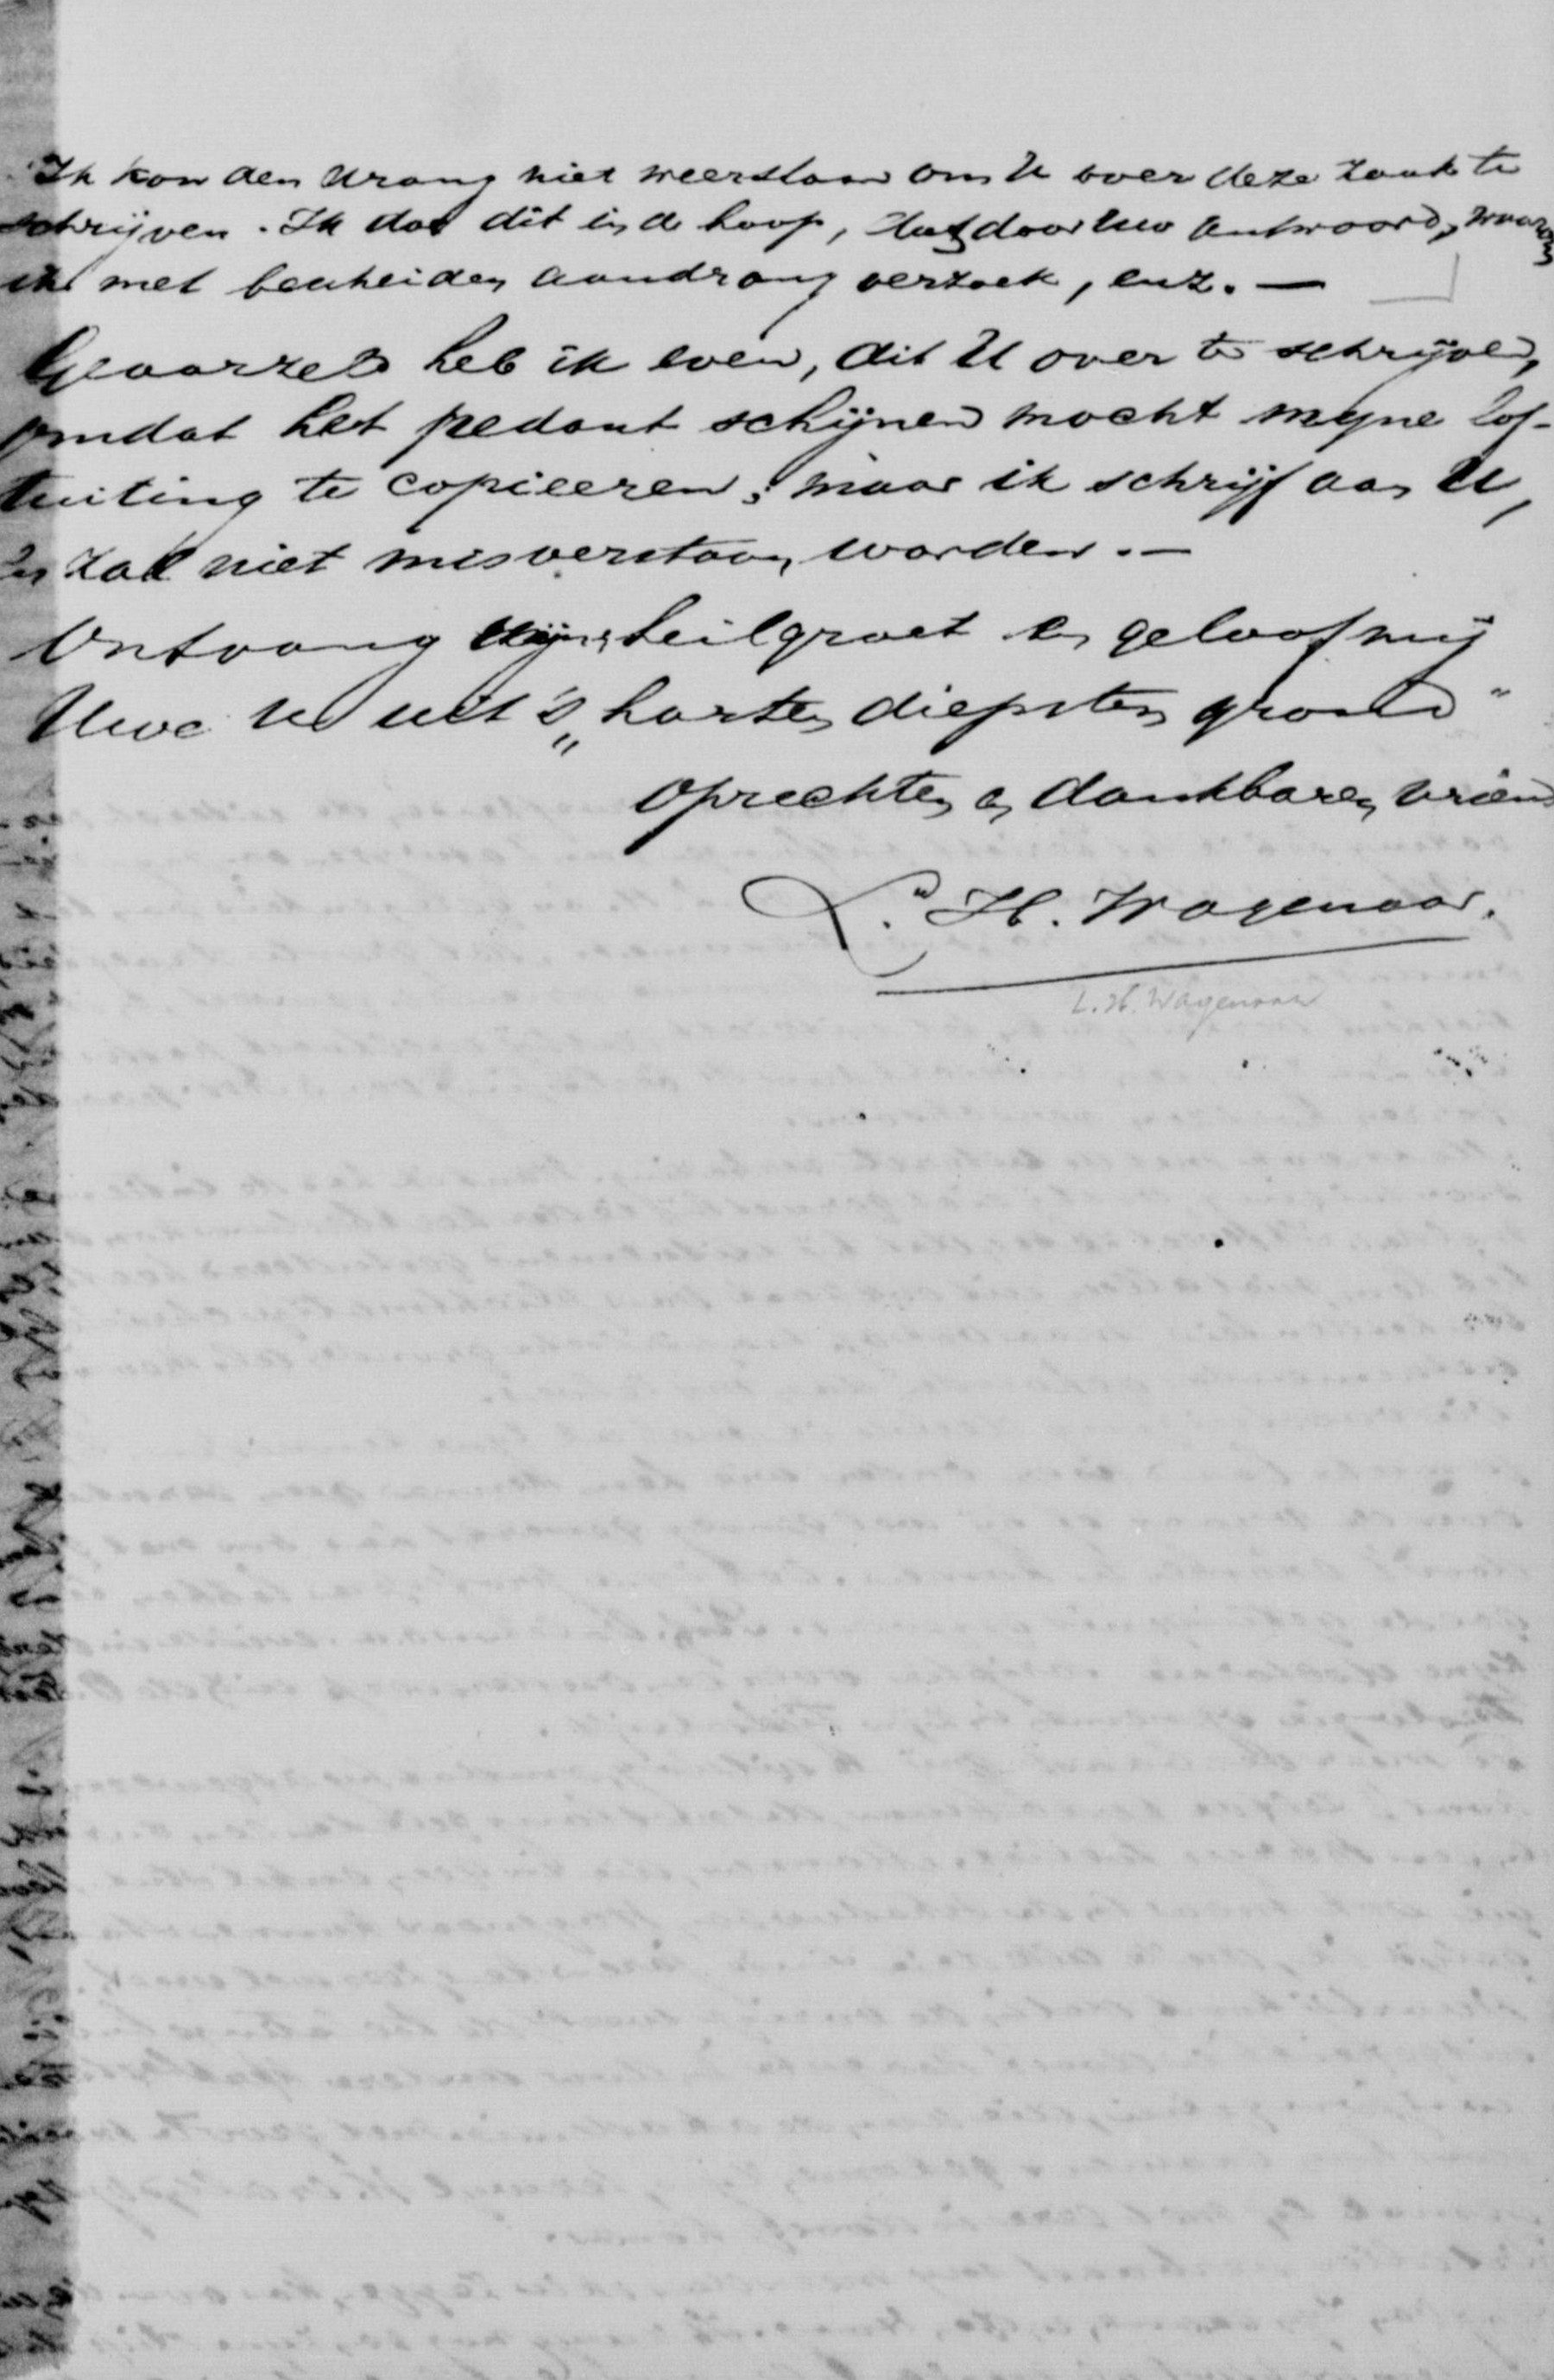 Ik kon den drang niet weerstaan om U over deze zaak te
schrijven. Ik doe dit in de hoop, dat door Uw antwoord, waarom
ik met bescheiden aandrang verzoek, enz. —
Geaarzeld heb ik even, dit U over te schrijven,
omdat het pedant schijnen mocht mijne lof-
tuiting te copieeren; maar ik schrijf aan U,
en zal niet misverstaan worden. —
Ontvang mijn heilgroet en geloof mij
Uwe uit 's „harten diepsten grond"
oprechten en dankbaren vriend
L. H. Wagenaar.
L. H. Wagenaar